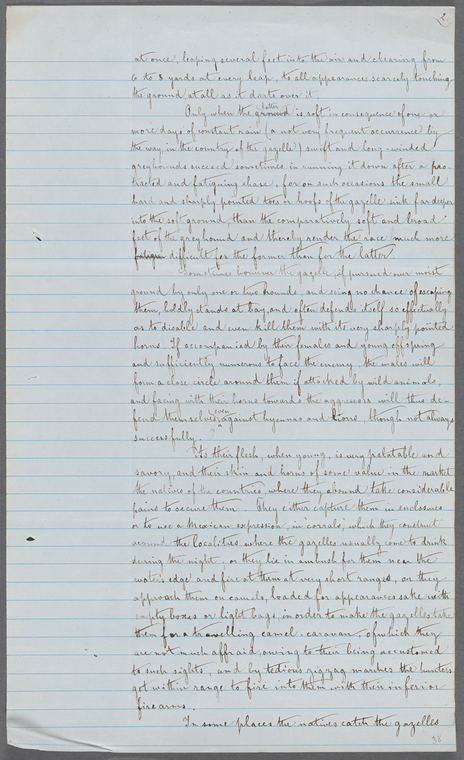 2
at once, leaping several feet into the air and clearing from
6 to 8 yards at every leap, to all appearances scarcely touching
the ground at all as it darts over it.
Only when the latter ground is soft in consequence of one or
more days of constant rain (a not very frequent occurrence by
the way in the country of the gazelle) swift and long-winded
greyhounds succeed sometimes in running it down after a pro-
tracted and fatiguing chase, for on such occasions the small
hard and sharply pointed toes or hoofs of the gazelle sink far deeper
into the soft ground, than the comparatively soft and broad
feet of the greyhound and thereby render the race much more
fatigue difficult for the former than for the latter.
Sometimes however the gazelle, if pursued over moist
ground by only one or two hounds and seing no chance of escaping
them, boldly stands at bay, and often defends itself so effectually
as to disable and even kill them with its very sharply pointed
horns. If accompanied by their females and young offspring
and sufficiently numerous to face the enemy, the males will
form a close circle around them if attacked by wild animals,
and facing with their horns towards the aggressors will thus de-
fend themselves even against hyaenas and lions, though not always
successfully.
As their flesh, when young, is very palatable and
savory, and their skin and horns of some value in the market
the natives of the countries, where they abound take considerable
pains to secure them. They either capture them in enclosures
or to use a Mexican expression, in corrals, which they construct
around the localities where the gazelles usually come to drink
during the night, or they lie in ambush for them near the
water's edge and fire at them at very short ranges, or they
approach them on camels, loaded for appearances sake with
empty boxes or light bags, in order to make the gazelles take
them for a travelling camel-caravan, of which they
are not much affraid, owing to their being accustomed
to such sights, and by tedious zigzag marches the hunters
get within range to fire into them with their inferior
fire arms.
In some places the natives catch the gazelles
38